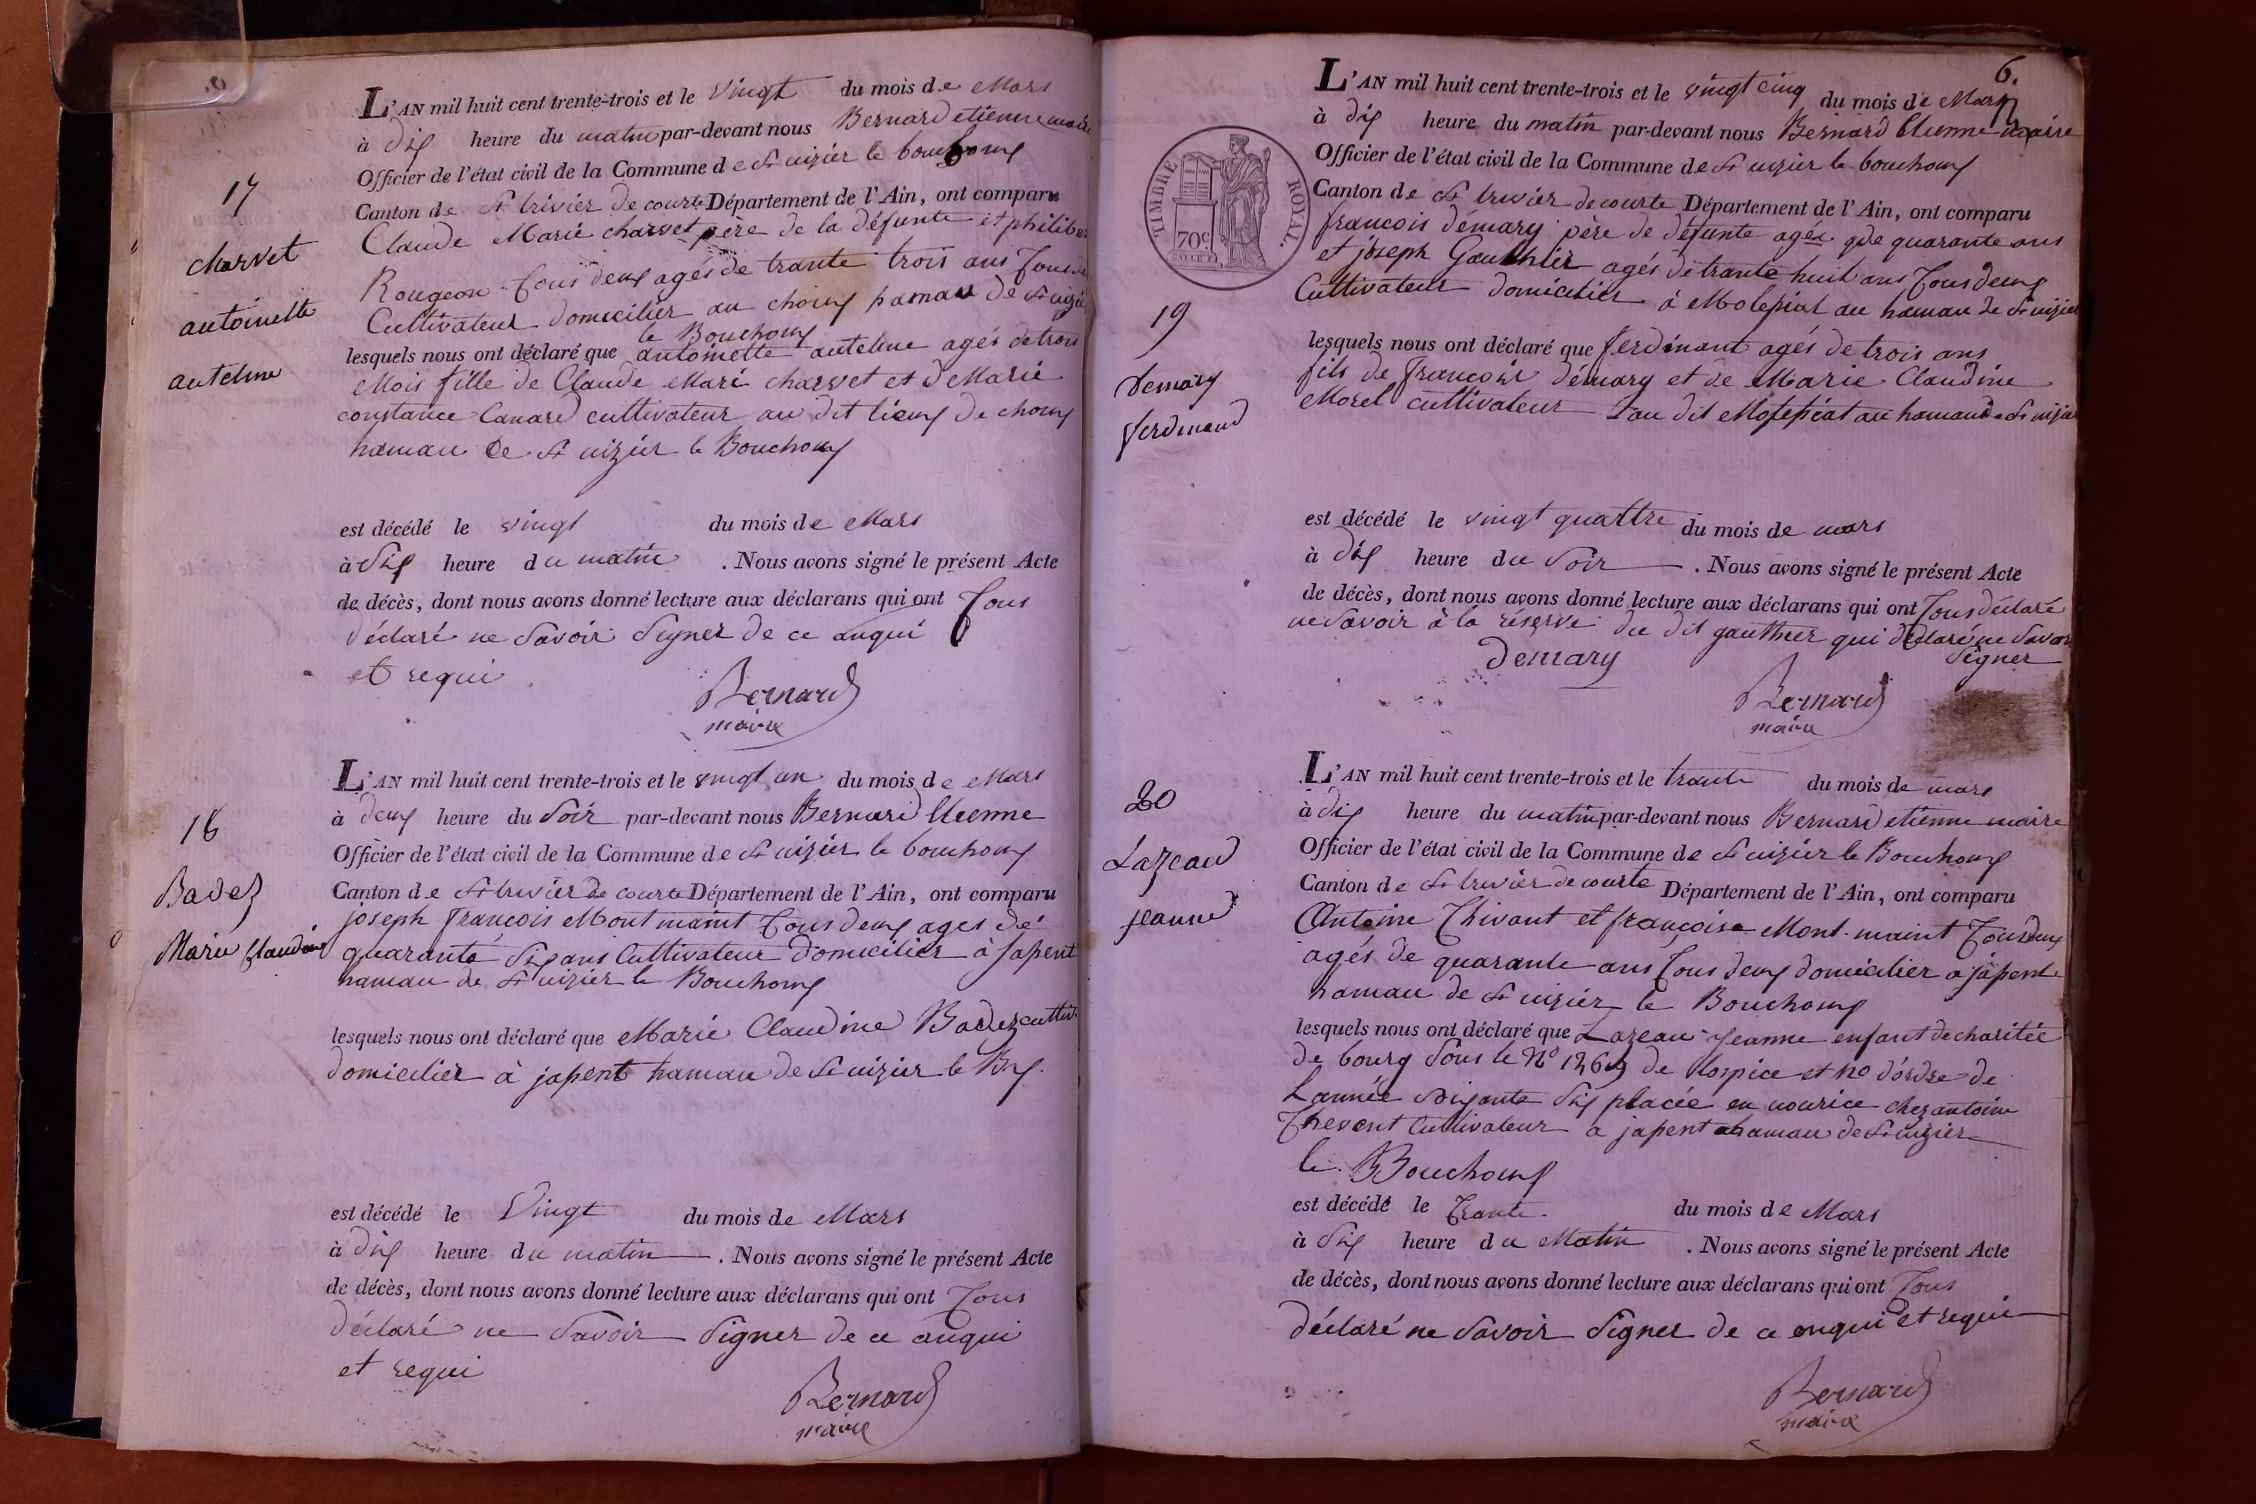 17
charvet
antoinette
anteline
L'AN mil huit cent trente-trois et le vingt du mois de Mars
à dix heure du matin par-devant nous Bernard etienne maire
Officier de l'état civil de la Commune de St nizier le bouchoux
Canton de St trivier de courte Département de l'Ain, ont comparu
Claude Marie charvet père de la défunte et philiber
Rougeon tous deux agés de trante trois ans tous de
Cultivateur domicilier au choux hamau de St nizie
le Bouchoux
lesquels nous ont déclaré que antoinette anteline agés de trois
Mois fille de Claude Mari charvet et de Marie
constance Canard cultivateur au dit lieux de choux
hamau de St nizier le Bouchoux
est décédé le vingt du mois de Mars
à six heure du matin . Nous avons signé le présent Acte
de décès, dont nous avons donné lecture aux déclarans qui ont tous
déclaré ne Savoir Signer de ce anqui
et requi
Bernard
maire
18
Badez
Marie Claudine
L'AN mil huit cent trente-trois et le vingt un du mois de Mars
à deux heure du Soir par-devant nous Bernard Etienne
Officier de l'état civil de la Commune de St nizier le bouchoux
Canton de St trivier de courte Département de l'Ain, ont comparu
joseph françois Montmaint tous deux ages de
quarante Six ans Cultivateur domicilier à japent
hamau de St nizier le Bouchoux
lesquels nous ont déclaré que Marie Claudine Badez cultiv
domicilier à japent hamau de St nizier le Bx.
est décédé le Vingt du mois de Mars
à dix heure du matin . Nous avons signé le présent Acte
de décès, dont nous avons donné lecture aux déclarans qui ont tous
déclaré ne Savoir Signer de ce anqui
et requi
Bernard
maire
6.
TIMBRE ROYAL.
70c.
19
Demary
ferdinand
L'AN mil huit cent trente-trois et le vingt cinq du mois de Mars
à dix heure du matin par-devant nous Bernard Etienne maire
Officier de l'état civil de la Commune de St nizier le bouchoux
Canton de St trivier de courte Département de l'Ain, ont comparu
francois démary père de defunte agés de quarante ans
et joseph Gauthier agés de trante huit ans tous deux
Cultivateur domicilier à Molepiat au hamau de St nizier
lesquels nous ont déclaré que ferdinant agés de trois ans
fils de françois démary et de Marie Claudine
Morel cultivateur au dit Molepiat au hamau de St nizier
est décédé le vingt quattre du mois de mars
à dix heure du Soir . Nous avons signé le présent Acte
de décès, dont nous avons donné lecture aux déclarans qui ont tous déclaré
ne Savoir à la réserve du dit gauthier qui déclaré ne Savoir
Signer
Demary
Bernard
maire
20
Lazeau
jeanne
L'AN mil huit cent trente-trois et le trante du mois de mars
à dix heure du matin par-devant nous Bernard etienne maire
Officier de l'état civil de la Commune de St nizier le Bouchoux
Canton de St trivier de courte Département de l'Ain, ont comparu
Antoine Thivant et françoise Mont-maint tous deux
agés de quarante ans tous deux domicilier a japent
hamau de St nizier le Bouchoux
lesquels nous ont déclaré que Lazeau Jeanne enfant de charitée
de bourg Sous le No de Hospice et no d'órdre de
L'année Soixante Six placée en nourice chez antoine
Thevent Cultivateur a japent hamau de St nizier
le Bouchoux
est décédé le Trante. du mois de Mars
à Six heure du Matin . Nous avons signé le présent Acte
de décès, dont nous avons donné lecture aux déclarans qui ont Tous
déclaré ne Savoir Signer de ce enqui et requi
Bernard
maire